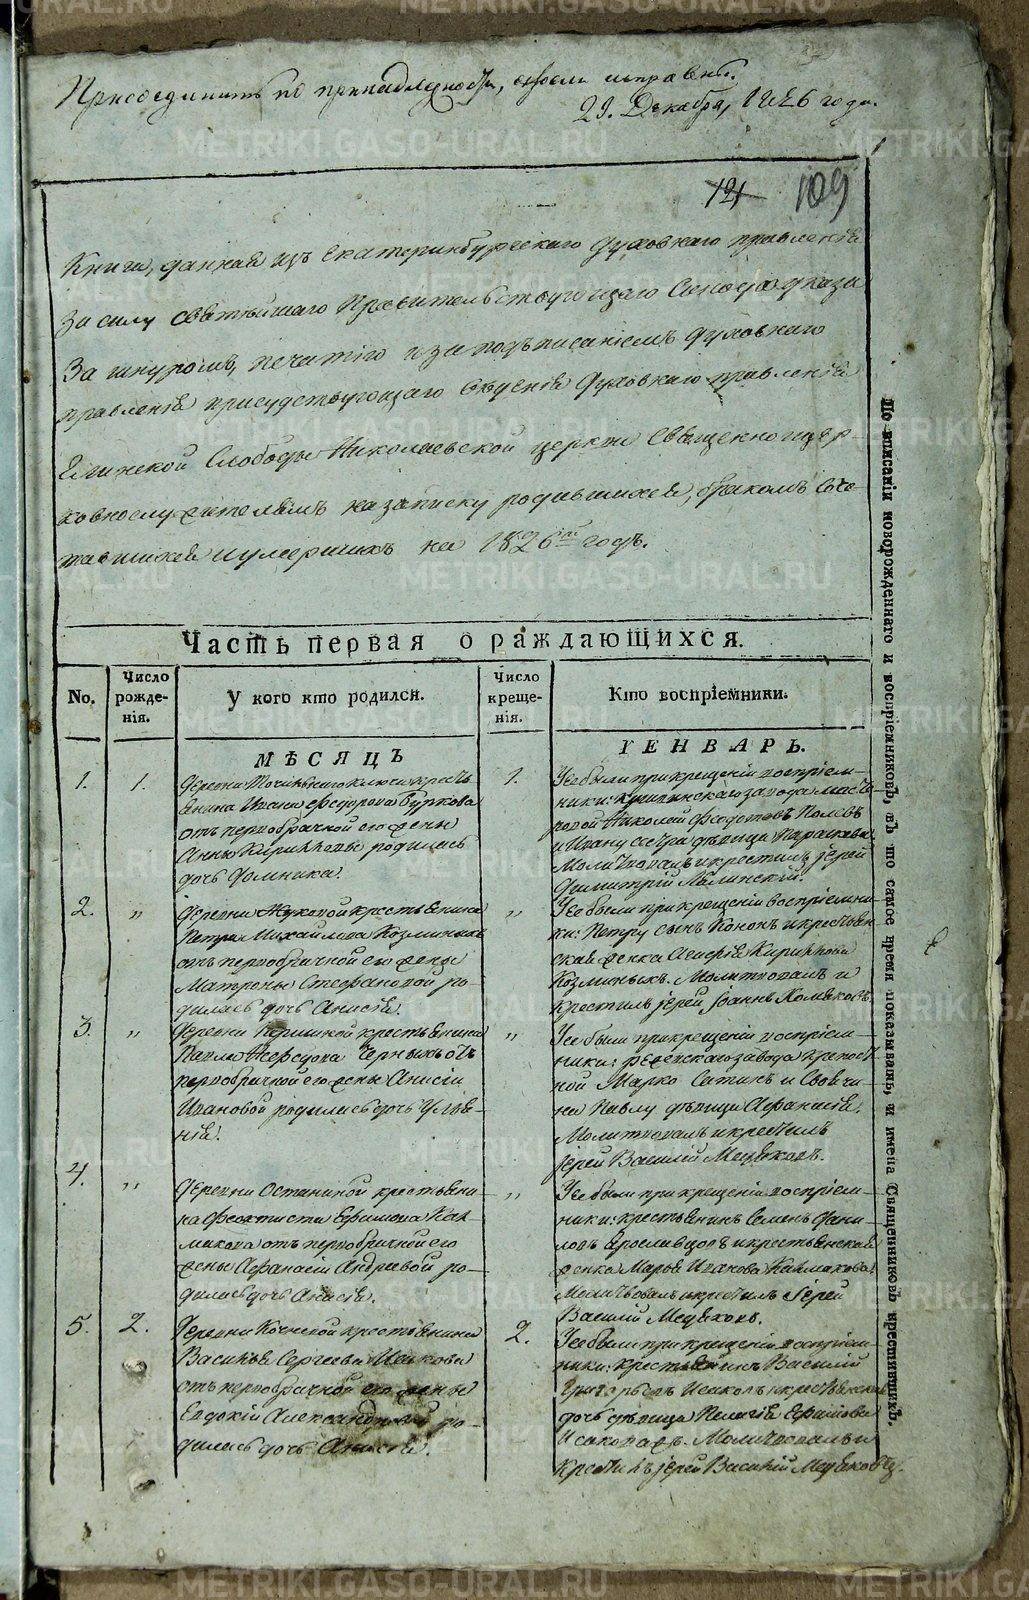 Присоединить по принадлежности,
29. Декабря, 1826 года.
1
121 109
Книга, данная изъ Екатеринбургскаго духовнаго правленія
За силу святѣйшаго Правительствующаго Синода указа
За шнуромъ, печатію и за подъписаніемъ духовнаго
правленія присудствующаго вѣденія духовнаго правленія
Слободы Николаевской церкви Священноцер-
ковнослужителямъ на записку родившихся, бракомъ соче-
тавшихся и умершихъ на 1826й годъ.
Часть первая о раждающихся.
No.
Число рожде- нія.
У кого кто родился.
Число креще- нія.
Кто воспріемники.
МѢСЯЦЪ
ГЕНВАРЬ.
1.
1.
Деревни ключа кресть
янина Ивана Федорова Буркова
отъ первобрачной его жены
Анны Кириловы родилась
дочь Домника.
1.
Уе были при крещеніи воспріем-
ники: завода масте
ровой Николай Федотовъ Полевъ
и Ивану сестра дѣвица Парасковья
Молитвовалъ и крестилъ іерей
Димитрій
2.
„
Деревни Жуковой крестьянина
Петра Михайлова Козминыхъ
отъ первобрачной его жены
Матроны Стефановой ро-
дилась дочь Анисія.
„
Уе были при крещеніи воспріемни-
ки: Петру сынъ Кононъ и крестьян
ская женка Кирилова
Козминыхъ. Молитвовалъ и
крестилъ іерей Іоаннъ Хомяковъ.
3.
„
Деревни крестьянина
Павла Черныхъ отъ
первобрачной его жены Анисіи
Ивановой родилась дочь Улья-
нія.
„
Уе были при крещеніи воспріем-
ники: завода
ной Марко Сатинъ и
Павлу дѣвица Афанасія.
Молитвовалъ и крестилъ
іерей Василій Медяковъ.
4.
„
Деревни Останиной крестьяни-
на Феоктиста Ефимова Кал-
макова отъ первобрачной его
жены Афанасіи Андреевой ро-
дилась дочь Анисія.
„
Уе были при крещеніи воспріем-
ники: крестьянинъ Семенъ Дани-
ловъ Ярославцовъ и крестьянская
женка Марья Иванова Калмакова.
Молитвовалъ и крестилъ Іерей
Василій Медяковъ.
5.
2.
Деревни крестьянина
Василья Сергеева Исакова
отъ первобрачной его жены
Евдокіи Александровой ро-
дилась дочь Анисія.
2.
Уе были при крещеніи воспріем-
ники: крестьянинъ Василій
Григорьевъ Исаковъ и крестьянская
дочь дѣвица Пелагія Ефимова
Исаковахъ. Молитвовалъ и
крестилъ іерей Василій Медяковъ.
По вписаніи новорожденнаго и воспріемниковъ, въ то самое время показывать, и имена Священниковъ крестившихъ.
METRIKI.GASO-URAL.RU